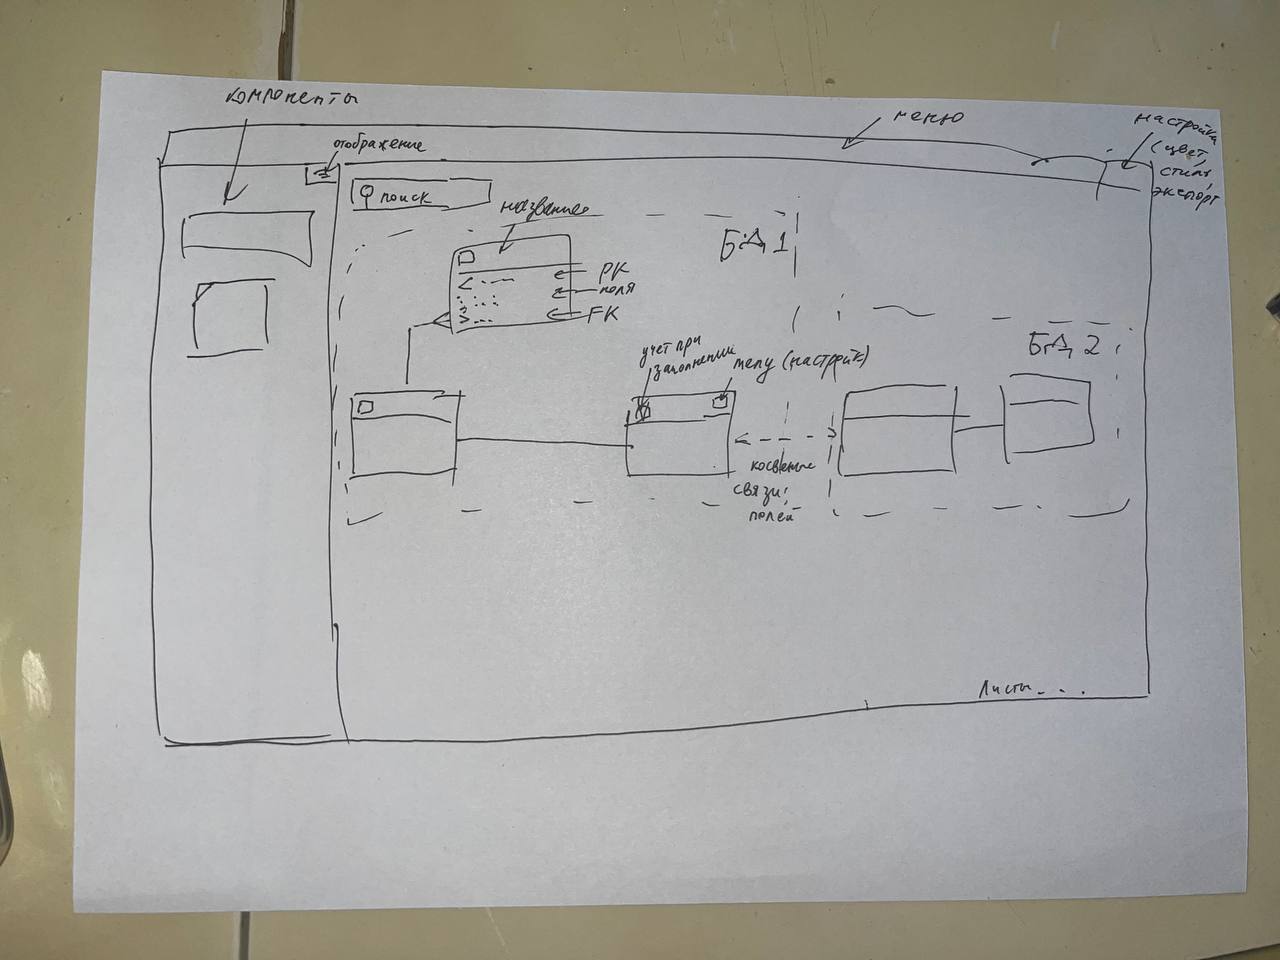 компоненты
меню
настройка
(цвет,
стиль,
экспорт
отображение
поиск
название
БД 1
PK
поля
FK
БД 2
учет при
заполнении
меню (настройк)
косвенные
связи
полей
Листы....